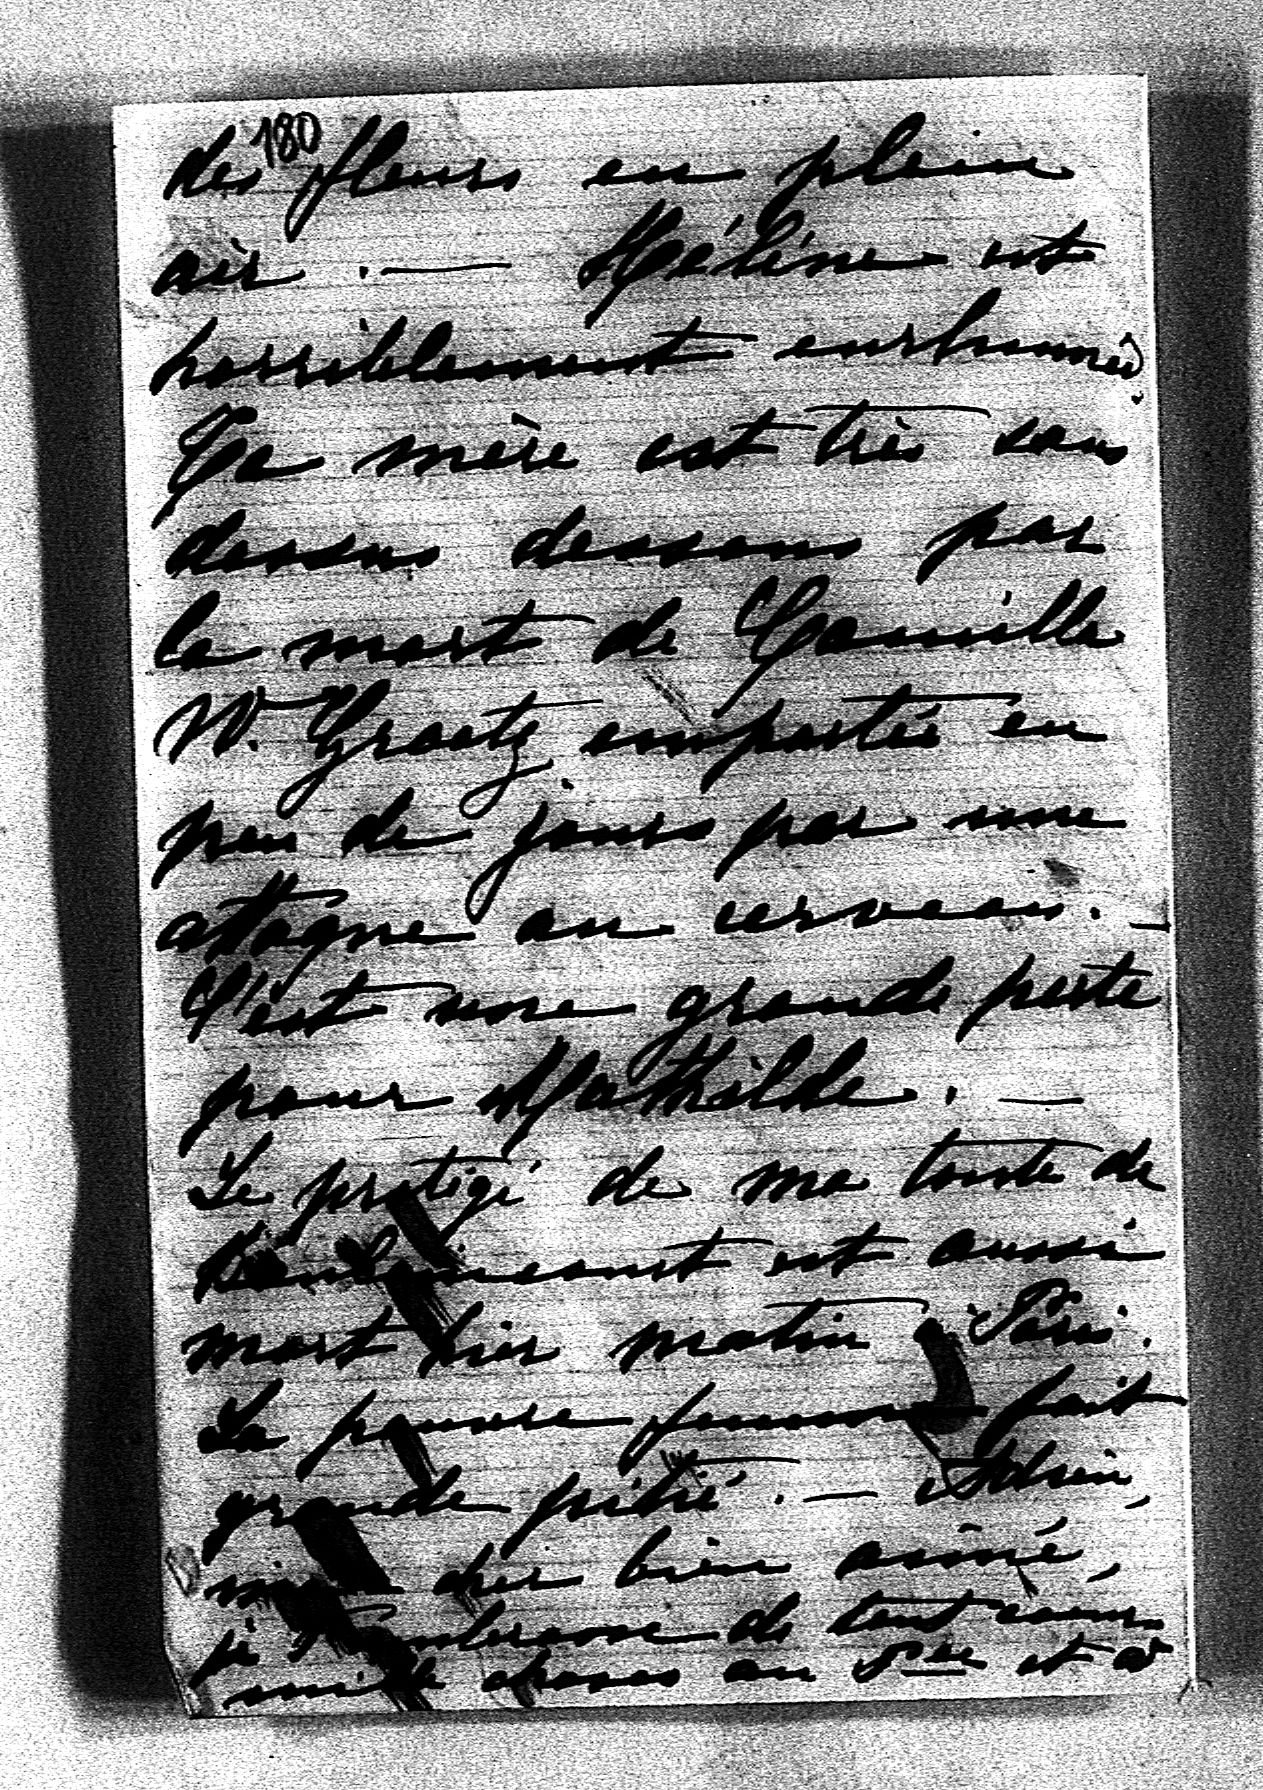 180
des fleurs en plein
air. — Hélène est
horriblement enrhumée.
Ta mère est très sans
dessus dessous par
la mort de Camille
W. Graetz emportée en
peu de jours par une
attaque au cerveau. —
C'est une grande perte
pour Mathilde. —
Le protégé de ma tante de
est aussi
mort hier matin à Paris.
La pauvre femme fait
grande pitié. — Adrien,
mon cher bien aimé,
je t'embrasse de tout coeur
mille choses au et à